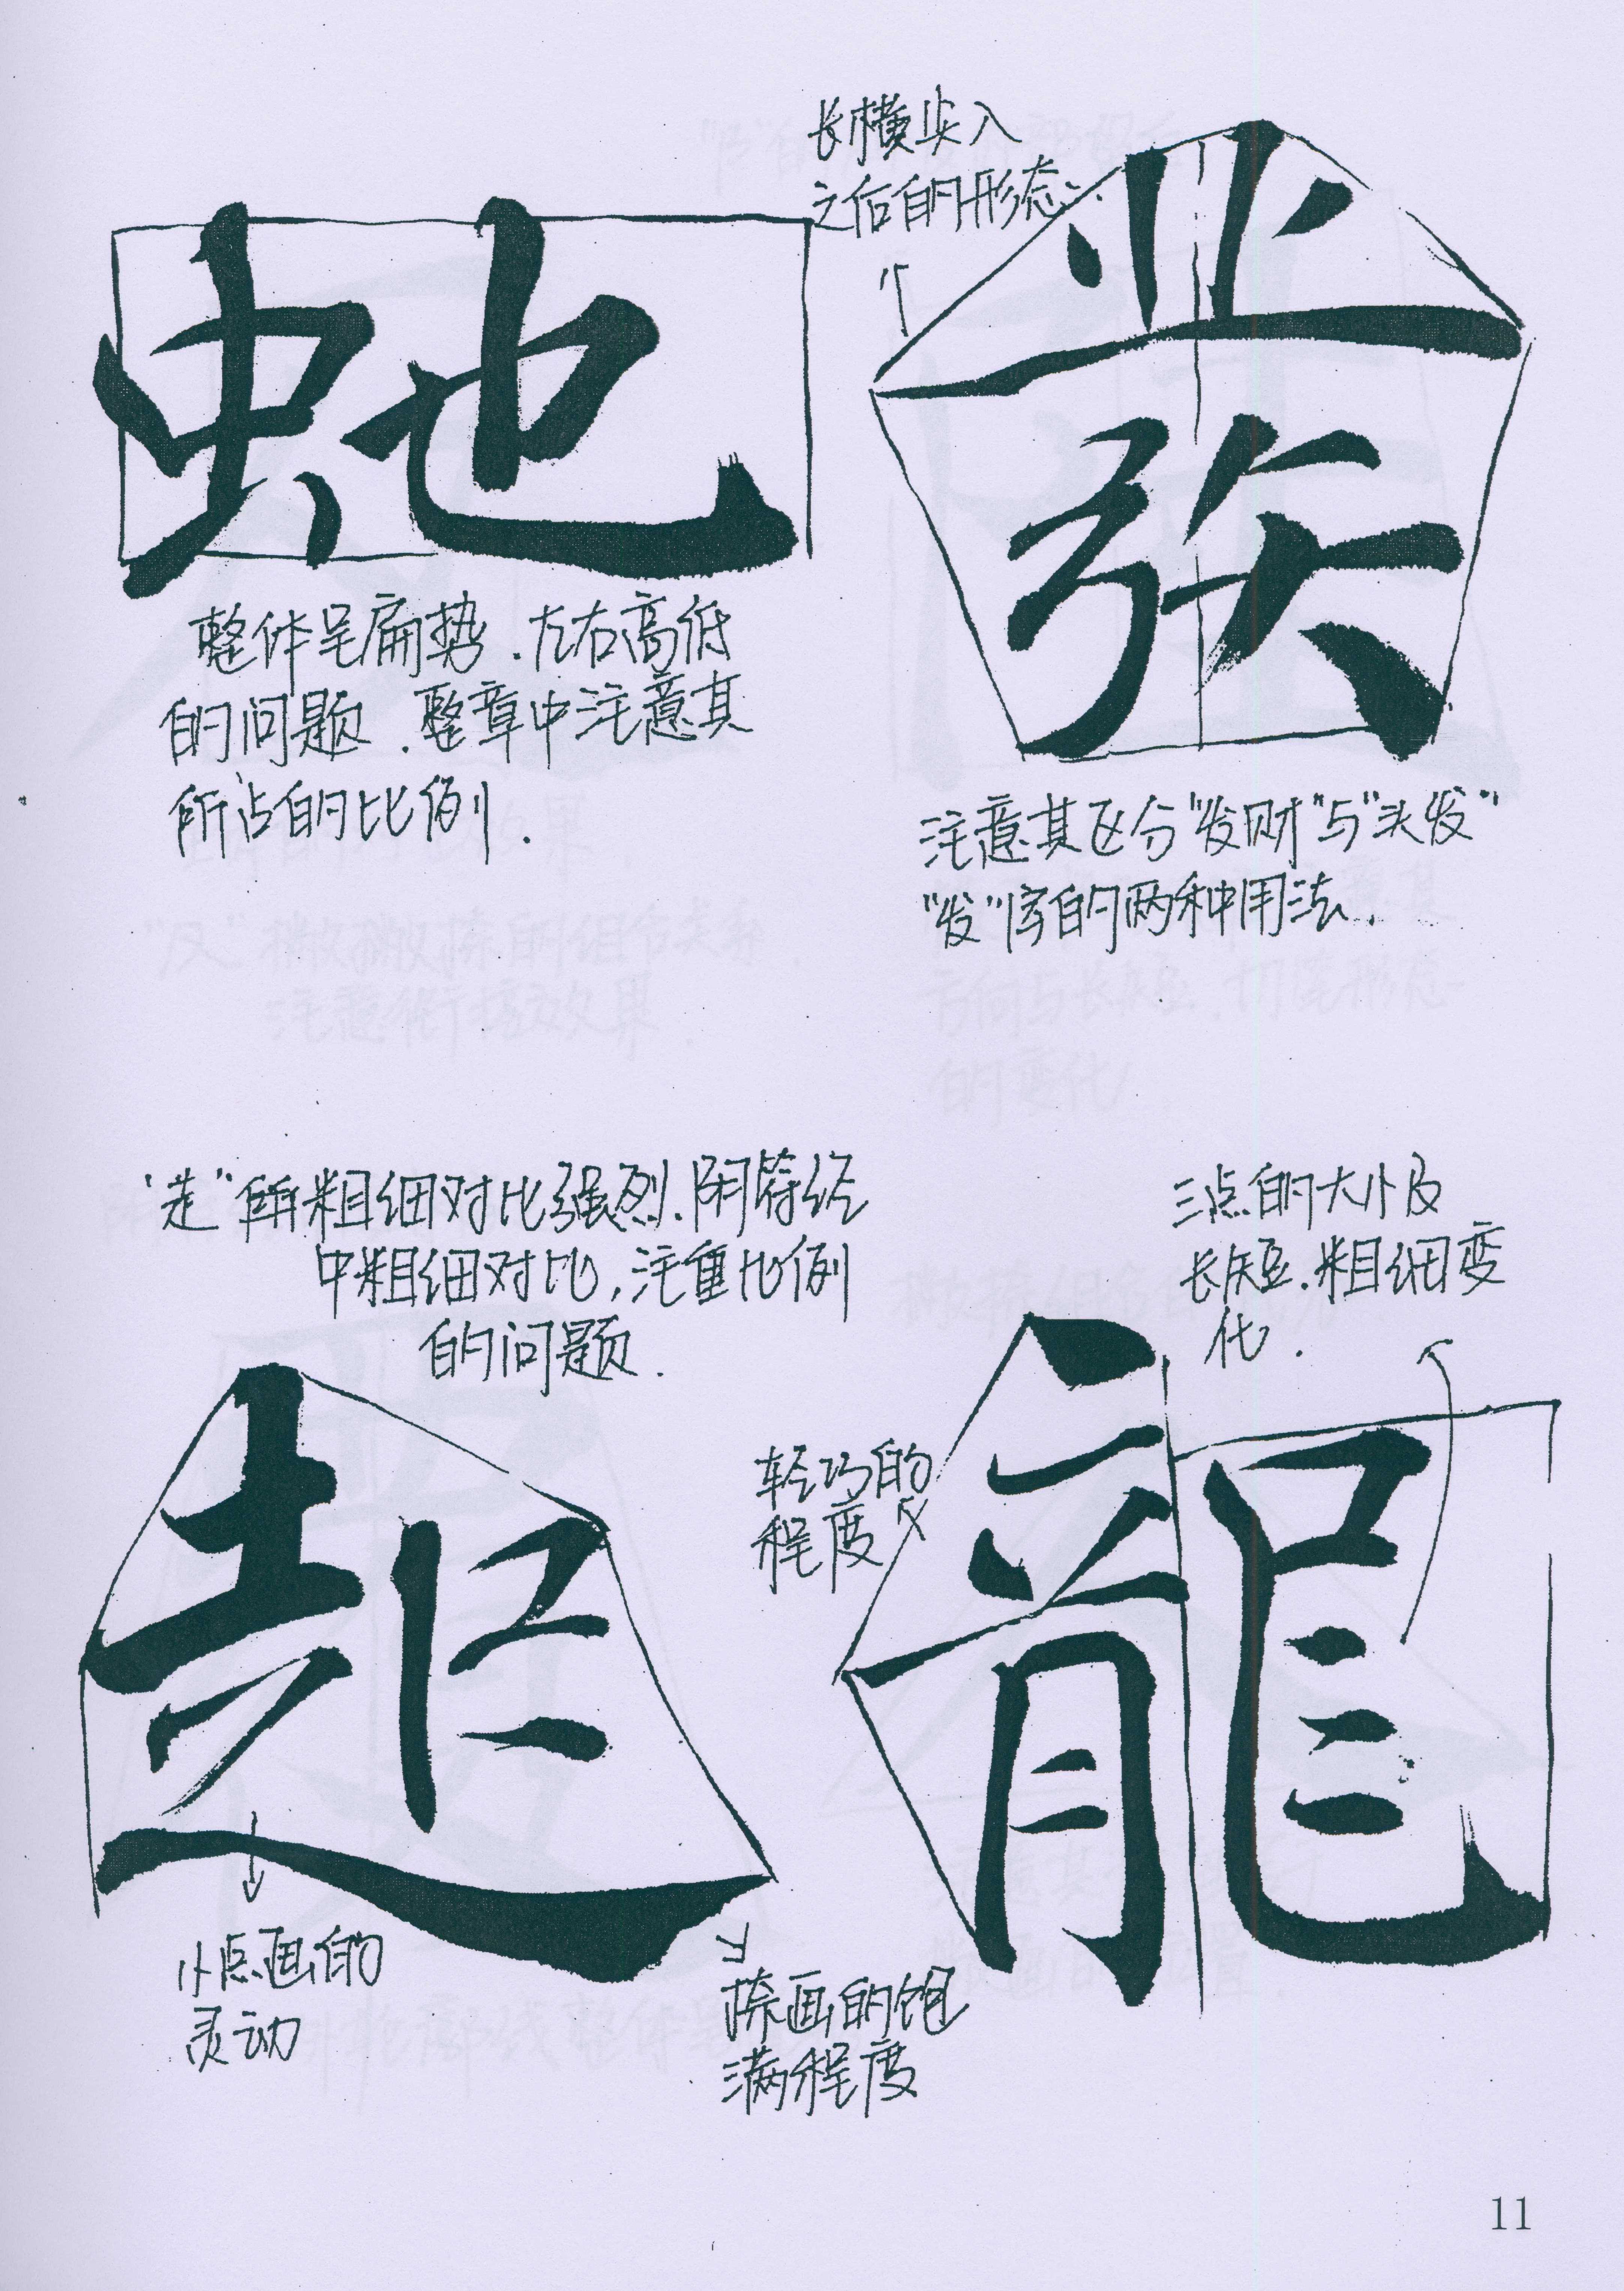 长横尖入
之后的形态.
虵
發
整体呈扁势.左右高低
的问题.整章中注意其
所占的比例.
注意其区分“发财”与“头发”
“发”字的两种用法.
“走”部粗细对比强烈.阴符经
中粗细对比,注重比例
的问题.
三点的大小及
长短.粗细变
化.
起
轻巧的
程度
龍
小点画的
灵动
捺画的饱
满程度
11